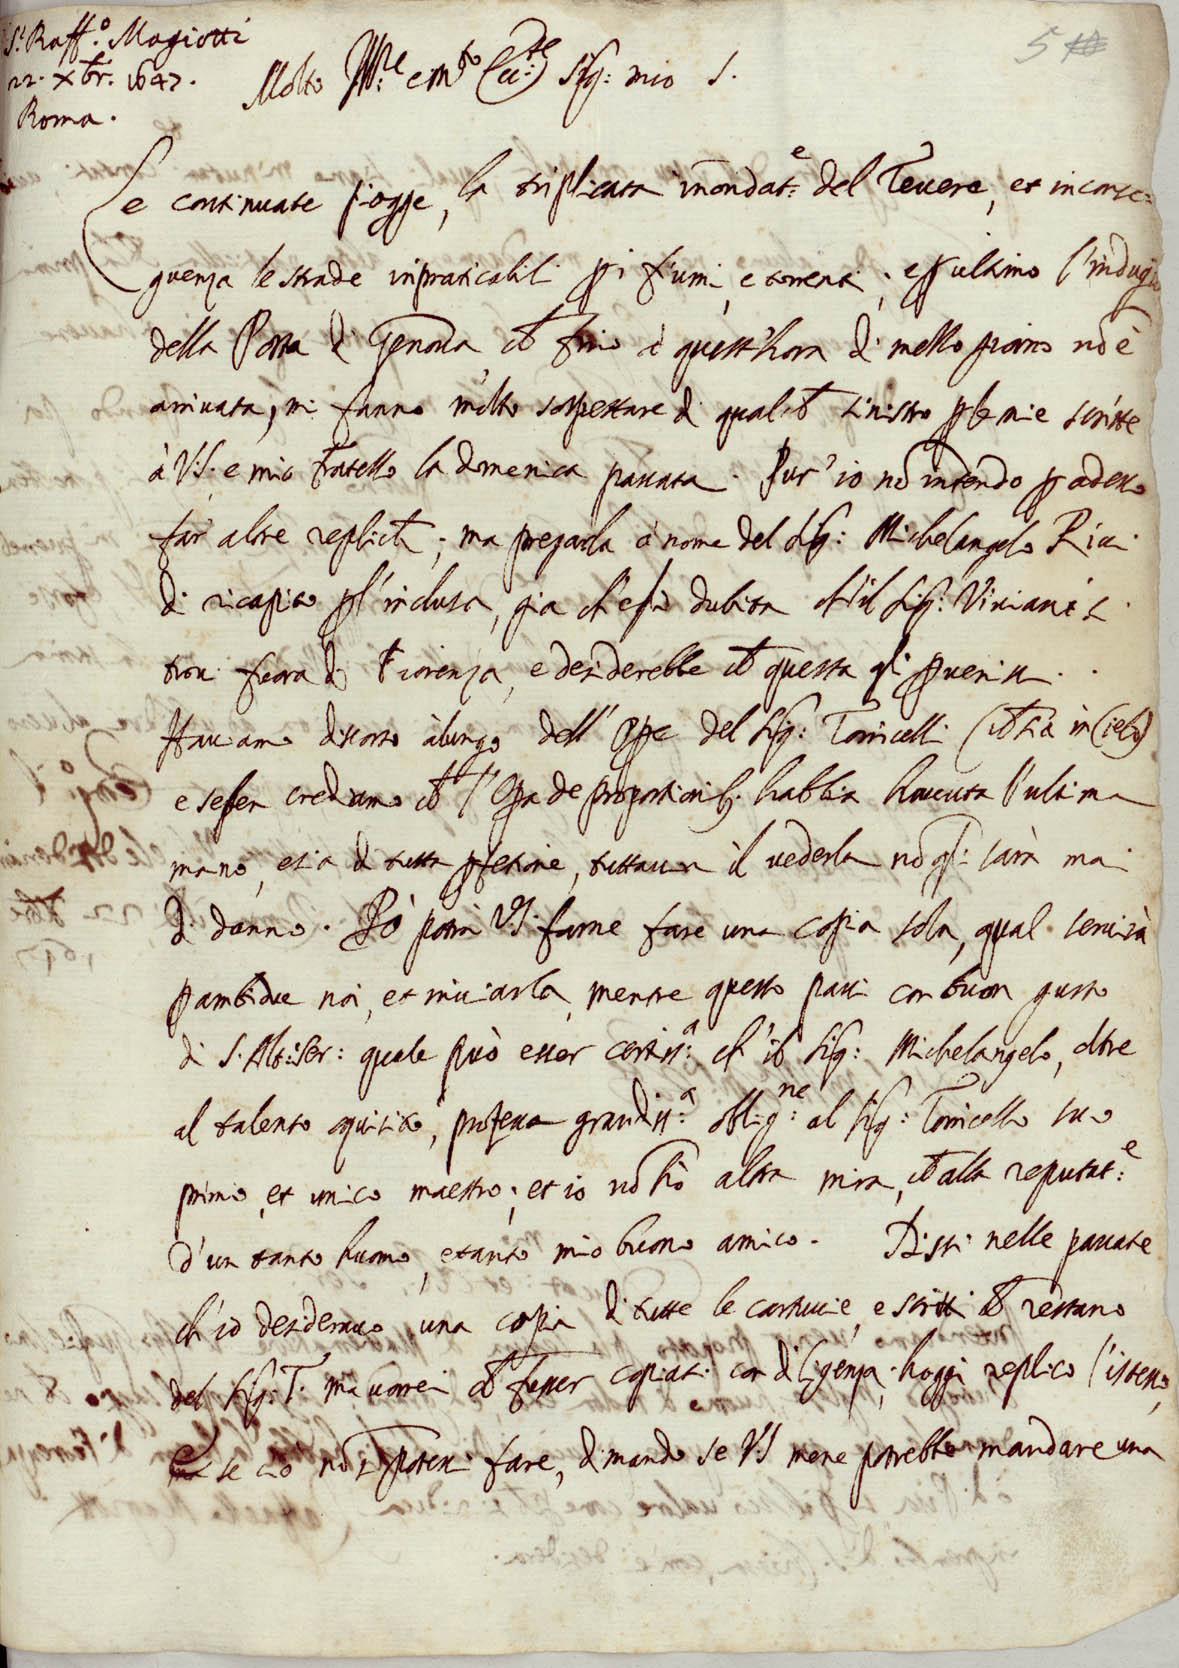 S.r Raff.o Magiotti
22. Xbr. 1647.
Roma.
5 10
Molto Ill.re e m.to Ecc.te Sig: mio S.
Le continuate piogge, la triplicata inondat.e del Tevere, et in conse=
guenza le strade inpraticabili p i fiumi, e torrenti; e p ultimo l'indugio
della Posta di Genova ch fino à quest'hora di mezzo giorno nō è
arrivata, mi fanno molto sospettare di qualch sinistro p le mie scritte
à V.S. e mio fratello la domenica passata. Pur'io nō intendo p adesso
far altre replich; ma pregarla à nome del Sig: Michelangelo Ricci
di ricapito p l'inclusa, gia ch'egli dubita ch'il Sig: Viviani s
trovi fuora di Fiorenza, e desiderebbe ch questa gli pvenisse.
Haviamo discorso à lungo dell'opre del Sig: Torricelli (ch sia in Cielo)
e se ben crediamo ch l'Opa de proportionib. habbia havuta l'ultima
mano, e sia di tutta pfetione, tuttavia il vederla nō gli sarà mai
di danno. Pò potrà V.S. farne fare una copia sola, qual servirà
p ambidue noi, et inviarla, mentre questo passi con buon gusto
di S. Alt: Ser: quale può esser certiss.a ch'il Sig: Michelangelo, oltre
al talento squisito, professa grandiss.a oblig.ne al Sig: Torricello suo
primo, et unico maestro; et io nō hò altra mira, ch alla reputat.e
d'un tanto huomo, e tanto mio buono amico. Dissi nelle passate
ch'io desideravo una copia di tutte le cartucie, e scritti ch restano
del Sig: T. ma vorrei ch fusser copiati con diligenza; hoggi replico l'istesso,
e se ciò nō si potessi fare, dimando se V.S. mene potrebbe mandare una